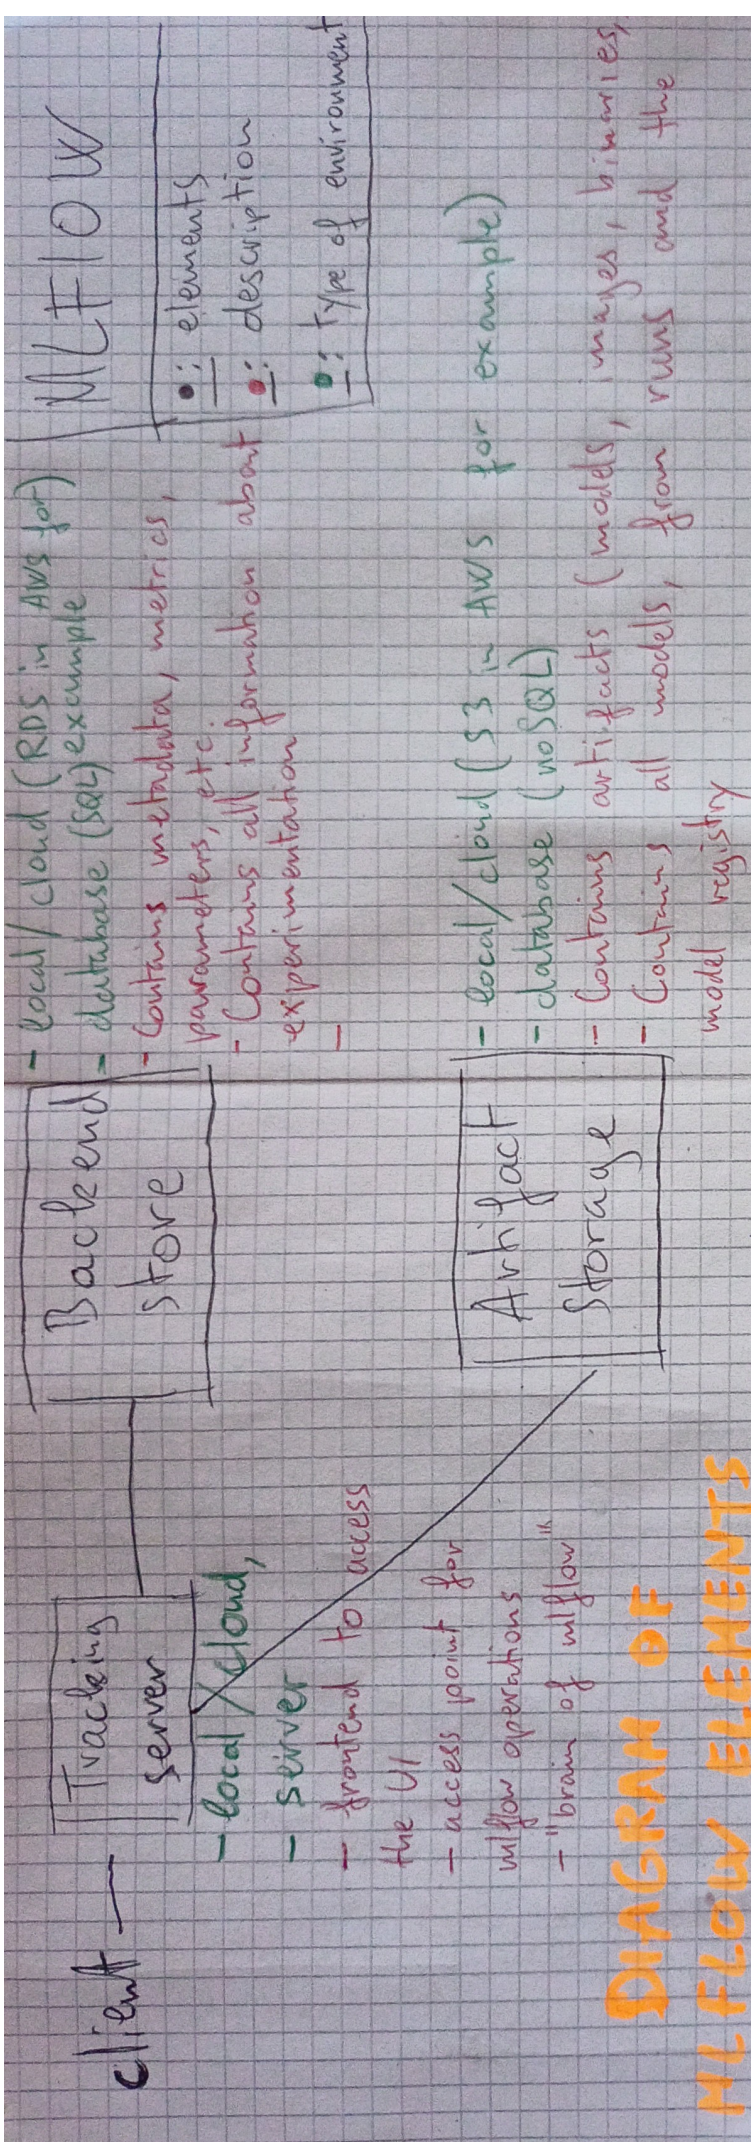 MLFlOW
•: elements
•: description
•: Type of environment
client
Tracking
server
- local/cloud,
- server
- frontend to access
the UI
- access point for
mlflow operations
- "brain of mlflow"
Backend
store
- local/cloud (RDS in AWS for)
- database (SQL) example
- Contains metadata, metrics,
parameters, etc
- Contains all information about
experimentation
-
Artifact
Storage
- local/cloud (S3 in AWS for example)
- database (noSQL)
- Contains artifacts (models, images, binaries,
- Contains all models, from runs and the
model registry
DIAGRAM OF
MLFLOW ELEMENTS